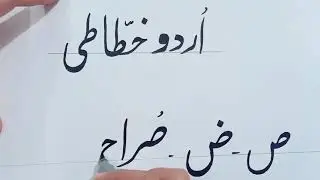 اُردو خطّاطی
ص - ض - صُراح